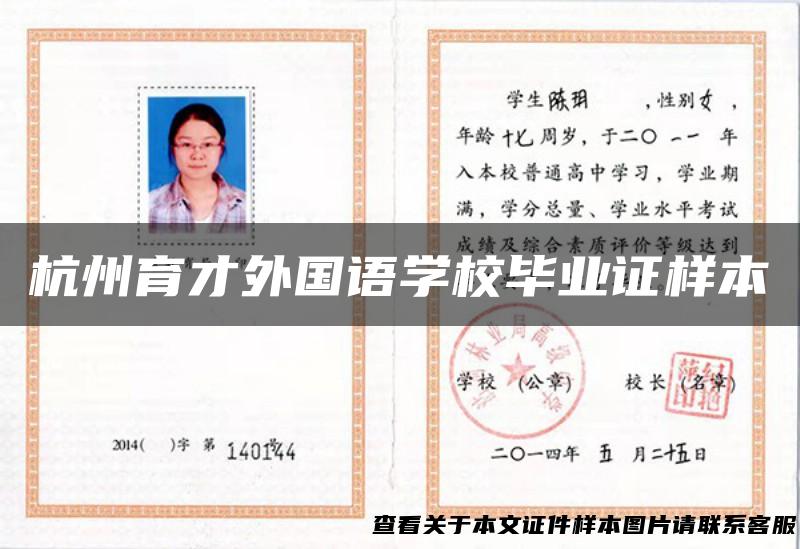 学生陈玥 ,性别女,
年龄十七周岁,于二〇一一年
入本校普通高中学习,学业期
满,学分总量、学业水平考试
成绩及综合素质评价等级达到
杭州育才外国语学校毕业证样本
林业局高级
学校 (公章) 校长 (名章)
2014( )字 第 140144 号
二〇一四年 五 月二十五日
查看关于本文证件样本图片请联系客服